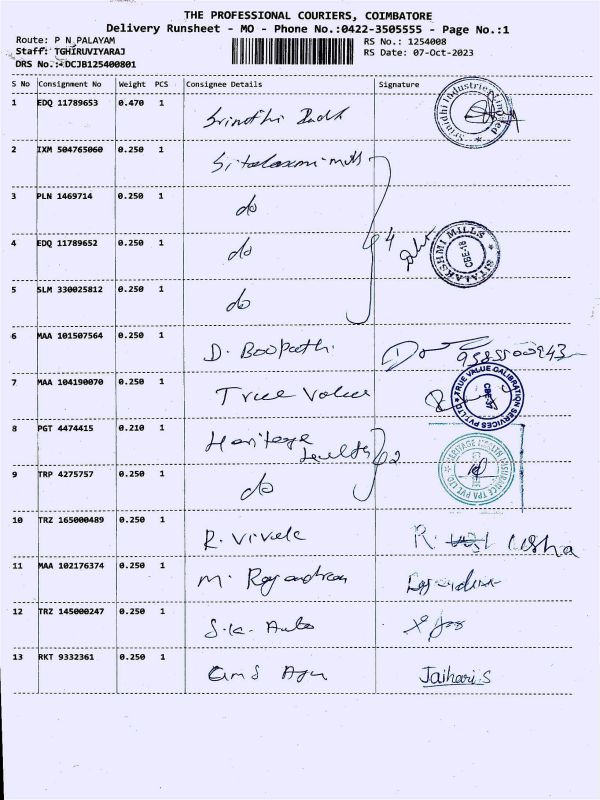 THE PROFESSIONAL COURIERS, COIMBATORE
Delivery Runsheet - MO - Phone No.:0422-3505555 - Page No.:1
Route: P N PALAYAM
RS No.: 1254008
Staff: TGHIRUVIYARAJ
RS Date: 07-Oct-2023
DRS No.: DCJB125400801
S No Consignment No Weight PCS Consignee Details Signature
1 EDQ 11789653 0.470 1 Srinidhi
Srinidhi Industries Limited
2 IXM 504765060 0.250 1 Sitalaxmi-mills
3 PLN 1469714 0.250 1 do
4 EDQ 11789652 0.250 1 do 4
SITALAKSHMI MILLS CBE-18
5 SLM 330025812 0.250 1 do
6 MAA 101507564 0.250 1 D. Boopathi
7 MAA 104190070 0.250 1 True Value
TRUE VALUE CALIBRATION SERVICES PVT LTD CBE-37
8 PGT 4474415 0.210 1 Heritage
Health 2
HERITAGE HEALTH INSURANCE TPA PVT LTD
9 TRP 4275757 0.250 1 do
10 TRZ 165000489 0.250 1 R. Vivek R. Usha
11 MAA 102176374 0.250 1 M. Rajendran
12 TRZ 145000247 0.250 1 S.K. Auto
13 RKT 9332361 0.250 1 Jaihari.S